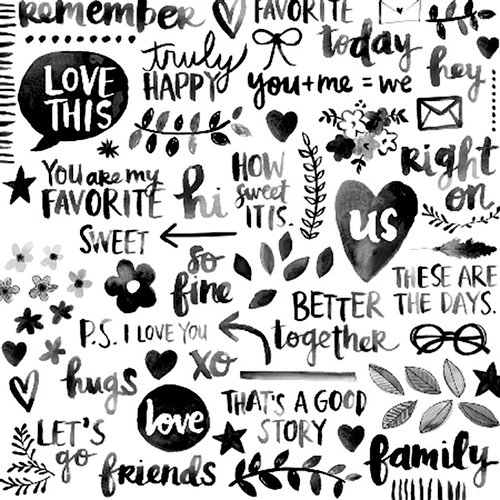 remember
FAVORITE
today
hey
LOVE
THIS
truly
HAPPY
you+me=we
Right
on.
YOU are my
FAVORITE
hi
HOW
sweet
IT IS.
us
SWEET
so
fine
THESE ARE
THE DAYS.
BETTER
together
P.S. I LOVE YOU
xo
hugs
love
THAT'S A GOOD
STORY
LET'S
go
friends
family